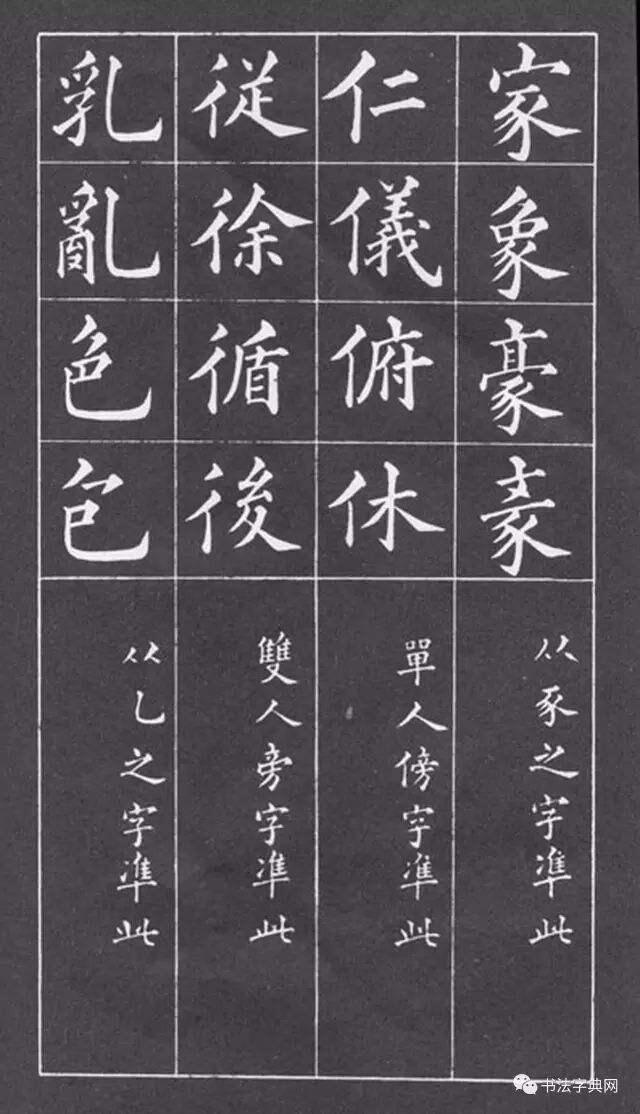 家象豪
从豕之字凖此
仁儀俯休
單人傍字凖此
従徐循後
雙人旁字凖此
乳亂色包
从乚之字凖此
书法字典网